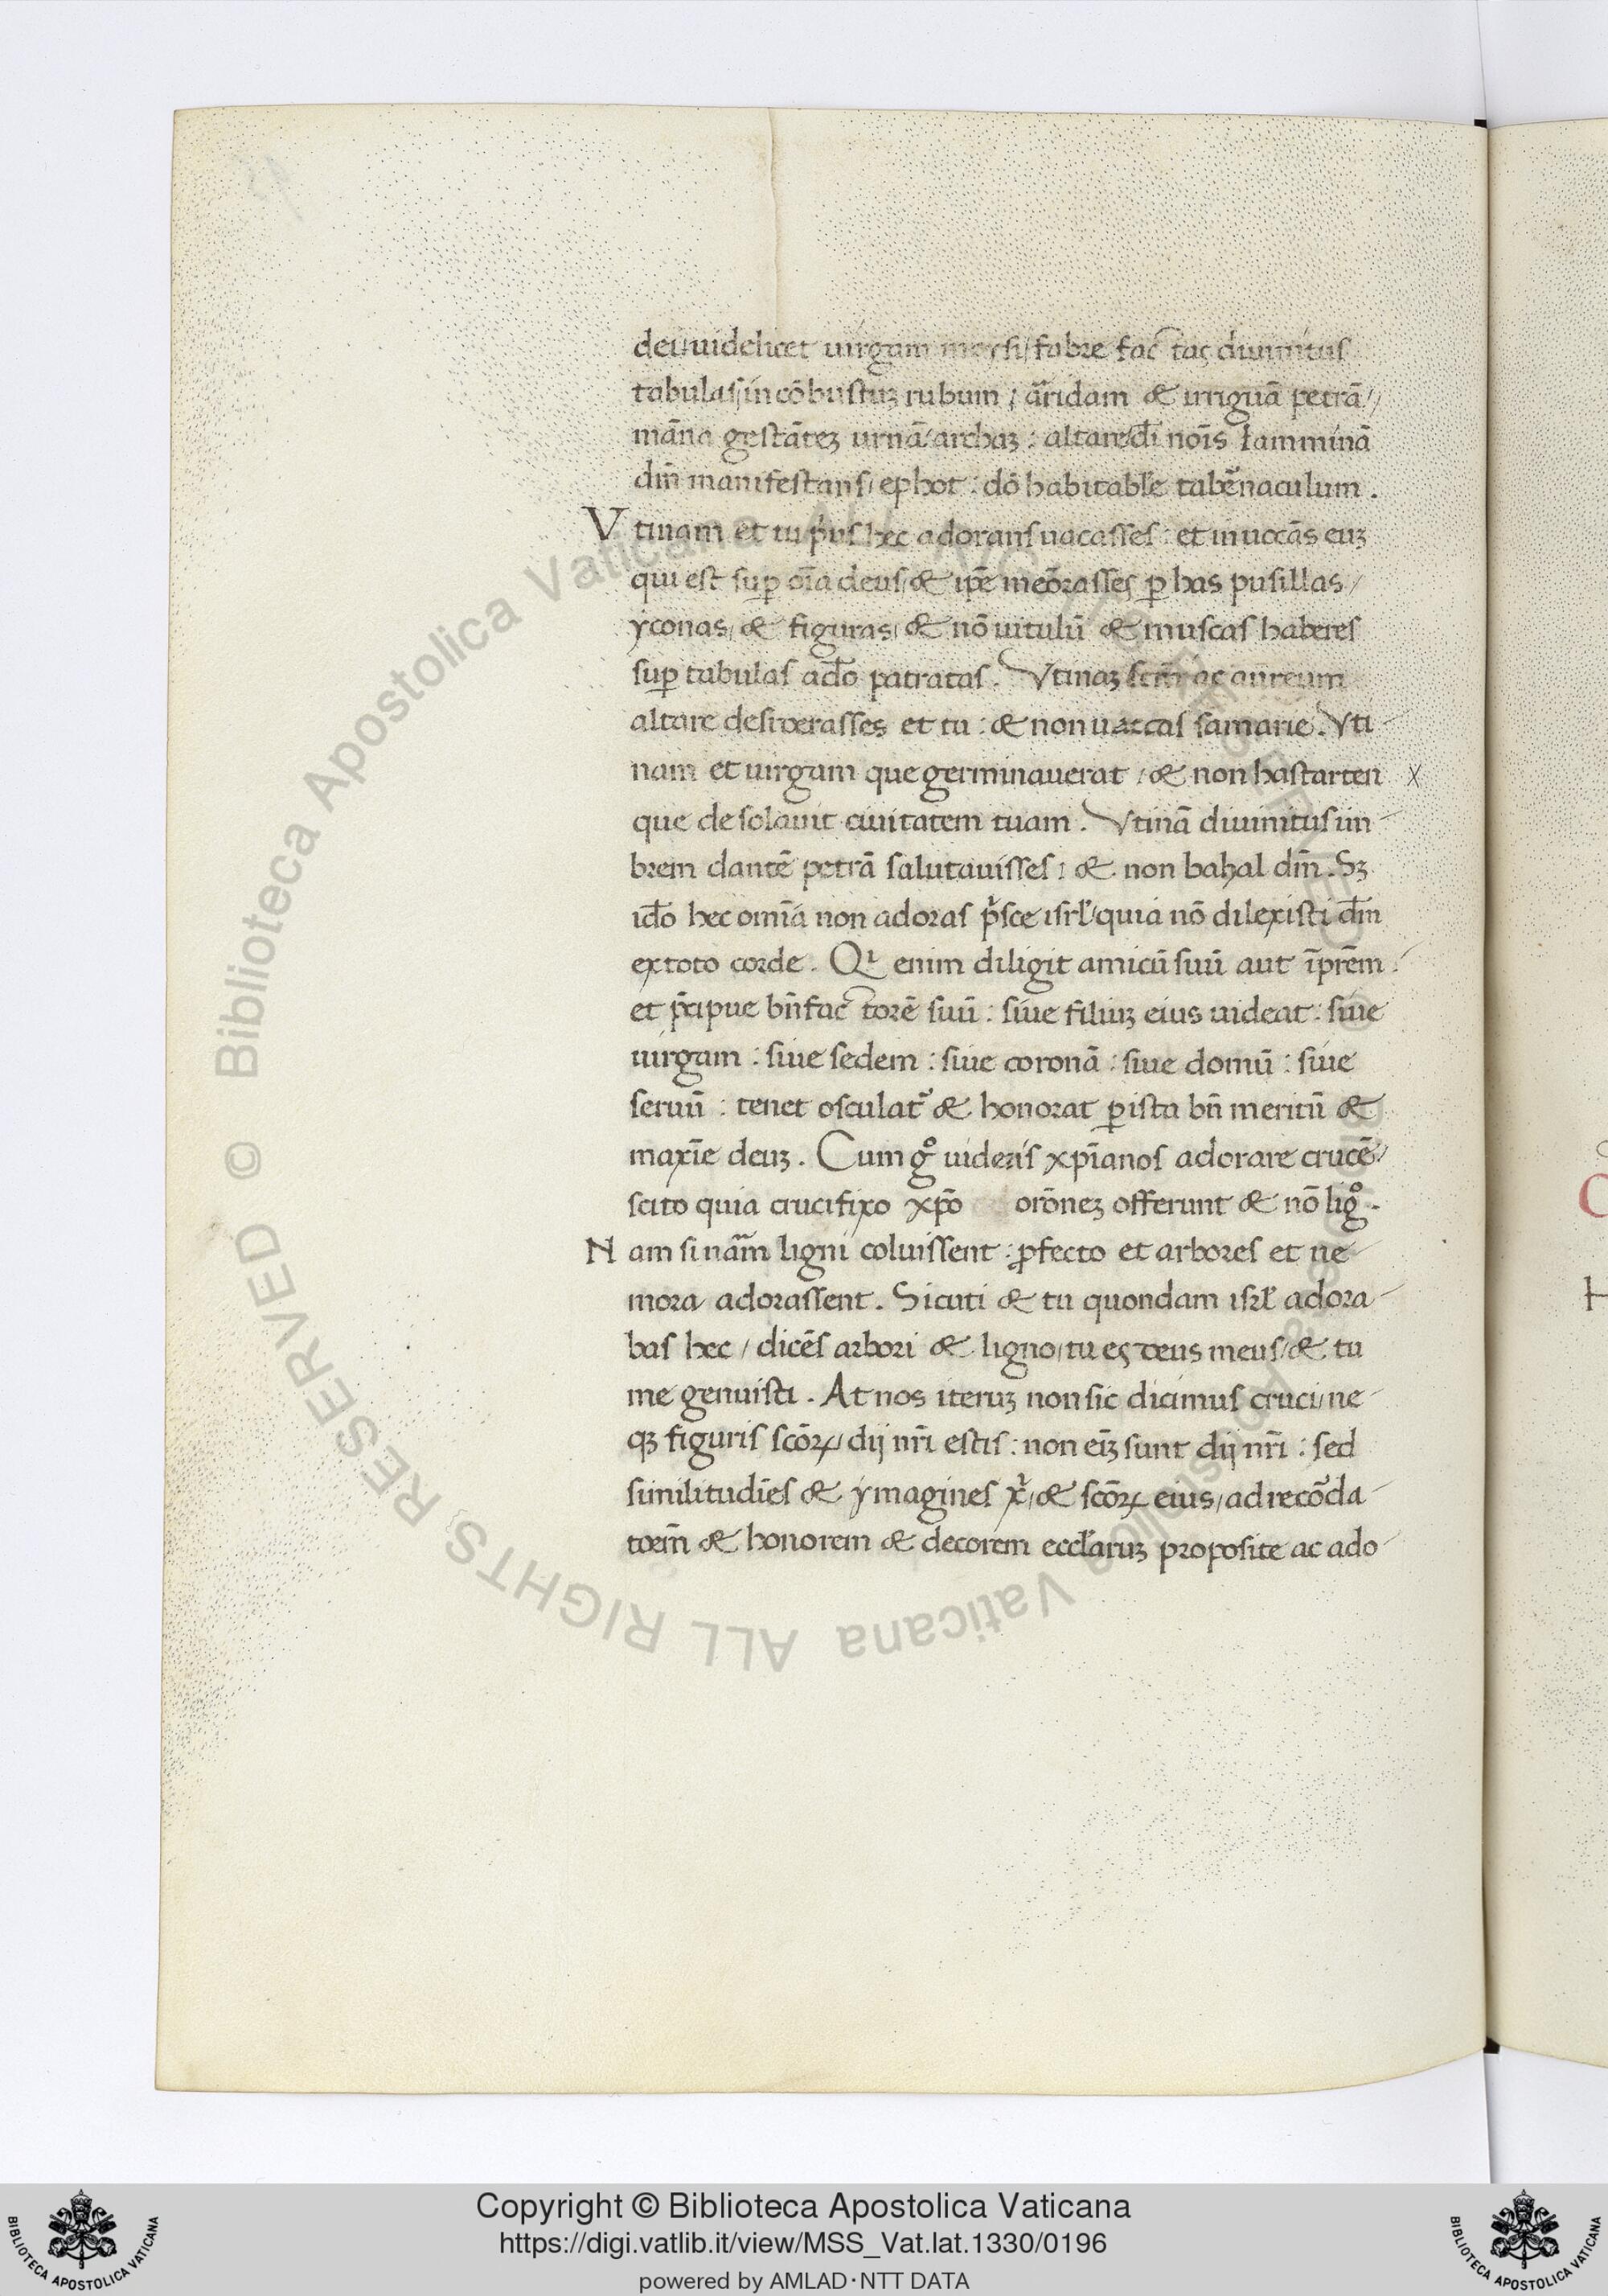 dei uidelicet uirgam moysi / fabre fac tas diuinitus
tabulas / in cōbustuꝫ rubum / āridam & irriguā petrā /
mānā gestāteꝫ urnā / archaꝫ : altare / dī nōis lamminā
dn̄i manifestans / ephot : dō habitabile tabernaculum .
Vtinam et tu pius hec adorans uacasses : et inuocās euꝫ
qui est suꝑ oīa deus / & ipē meōrasses ꝑ has pusillas /
yconas / & figuras / & nō uitulū & muscas haberes
suꝑ tabulas adō patratas . Vtinaꝫ scm̄ ac aureum
altare desiderasses et tu : & non uaccas samarie . Vti-
nam et uirgam que germinauerat / & non hastarten X
que desolauit ciuitatem tuam . Vtinā diuinitus im-
brem dantē petrā salutauisses : & non bahal dn̄m . Sꝫ
idō hec omīa non adoras p'sce isrl' quia nō dilexisti dm̄
ex toto corde . Qi enim diligit amicū suū aut īprēm
et p̄cipue bn̄fac torē suū : siue filiuꝫ eius uideat : siue
uirgam : siue sedem : siue coronā : siue domū : siue
seruū : tenet osculat' & honorat ꝑ ista bn̄ meritū &
maxīe deuꝫ . Cum gͦ uideris xpīanos adorare crucē /
scito quia crucifixo xpō orōneꝫ offerunt & nō ligͦ .
Nam si nām ligni coluissent : ꝓfecto et arbores et ne-
mora adorassent . Sicuti & tu quondam isrl' adora-
bas hec / dicēs arbori & ligno / tu es deus meus / & tu
me genuisti . At nos iteruꝫ non sic dicimus cruci / ne-
qꝫ figuris scōꝝ / dij nr̄i estis : non eīꝫ sunt dij nr̄i : sed
similitudīes & ymagines x' / & scōꝝ eius / ad recōrda-
toem̄ & honorem & decorem eccl'aruꝫ proposite ac ado-
Copyright © Biblioteca Apostolica Vaticana
https://digi.vatlib.it/view/MSS_Vat.lat.1330/0196
powered by AMLAD·NTT DATA
BIBLIOTECA APOSTOLICA VATICANA
BIBLIOTECA APOSTOLICA VATICANA
© Biblioteca Apostolica Vaticana ALL RIGHTS RESERVED
© Biblioteca Apostolica Vaticana ALL RIGHTS RESERVED